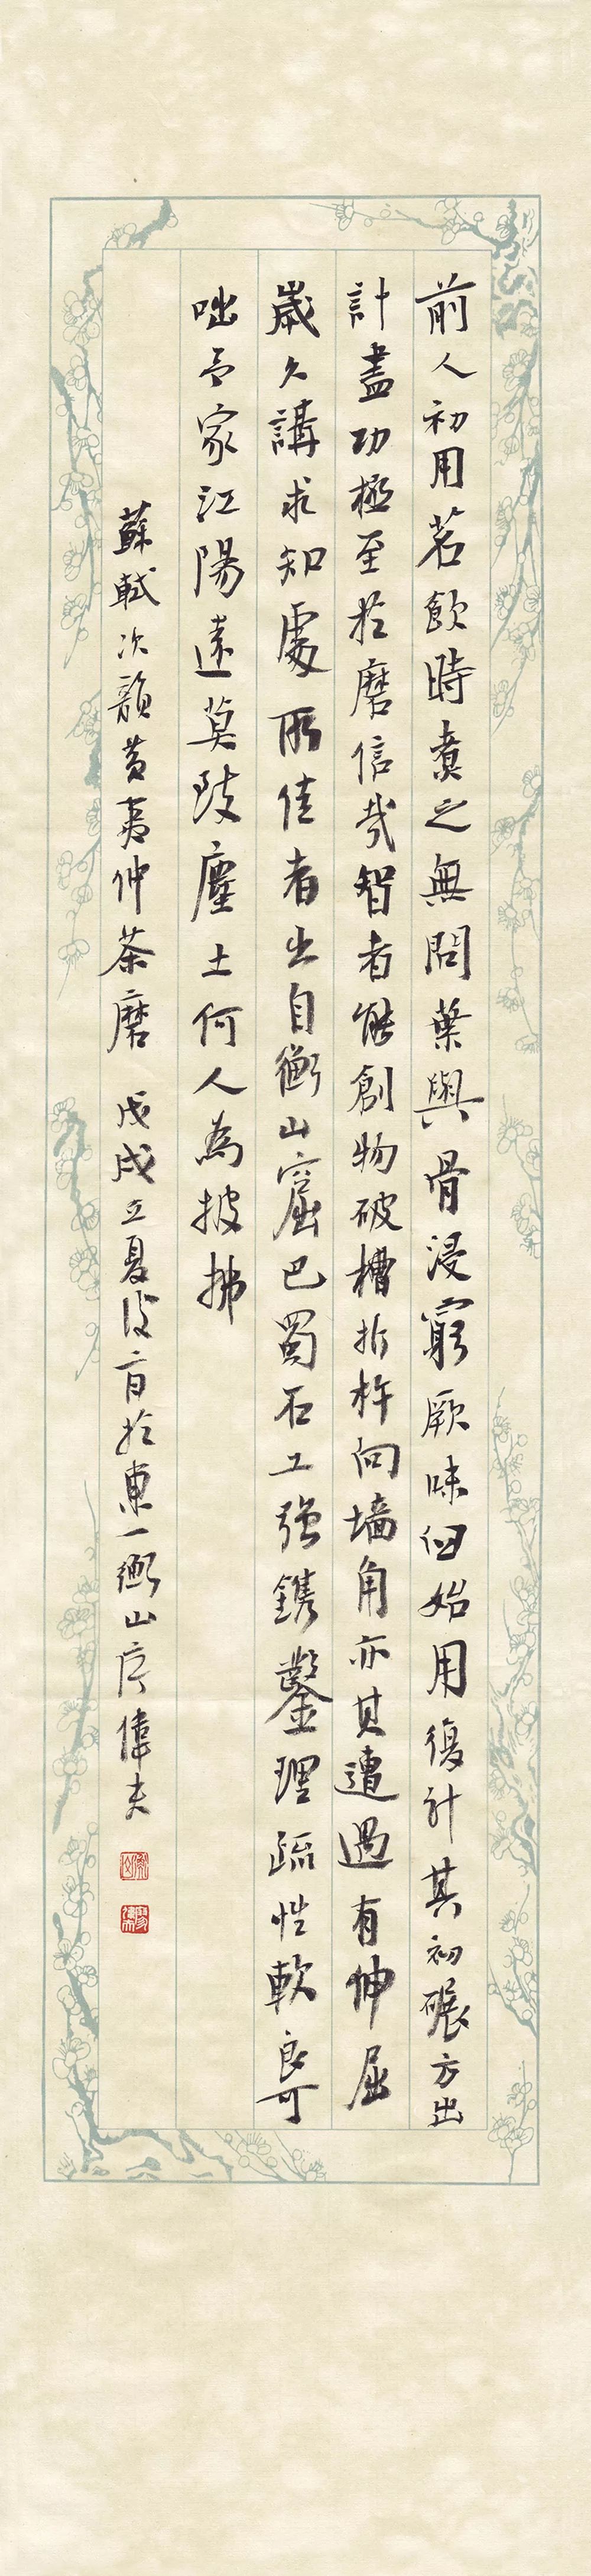 前人初用茗飲時煮之無問葉與骨浸窮厥味臼始用復計其初碾方出
計盡功極至於磨信哉智者能創物破槽折杵向墙角亦其遭遇有伸屈
歲久講求知處所佳者出自衡山窟巴蜀石工強鐫鑿理疏性軟良可
咄予家江陽遠莫致塵土何人為披拂
蘇軾次韻黃夷仲茶磨 戊戌立夏後日於東一衡山房偉夫